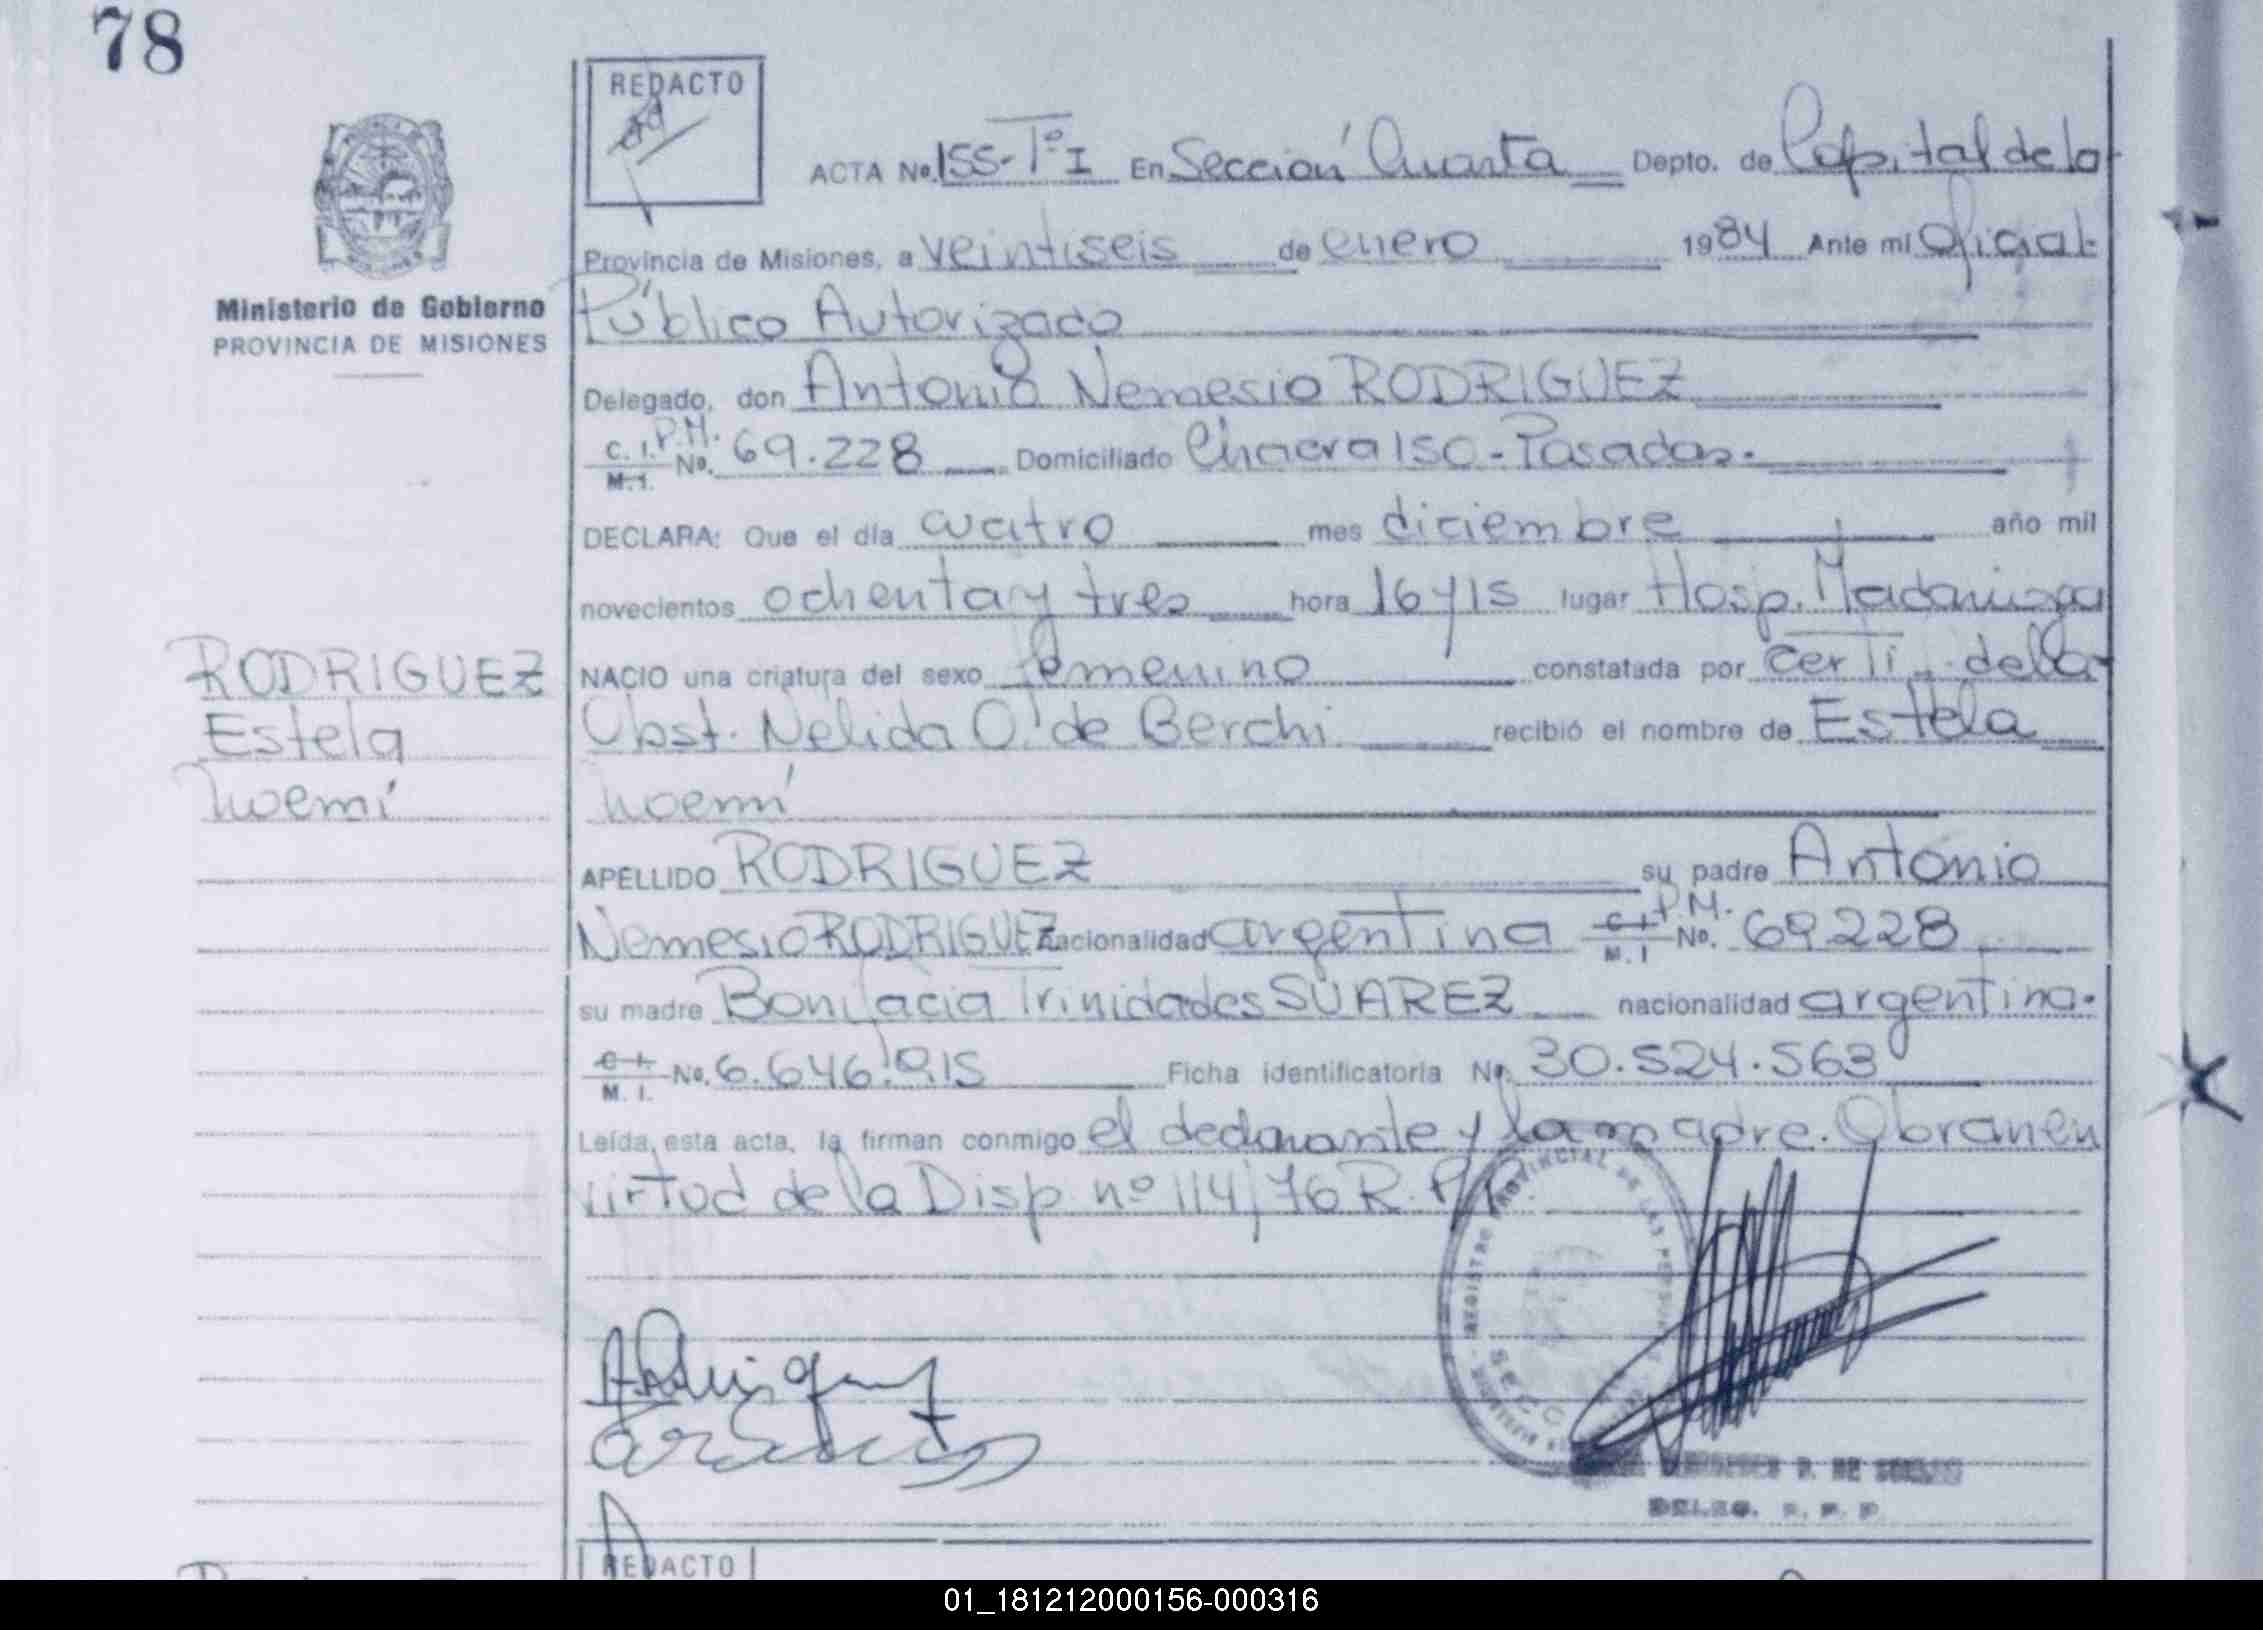 78
REDACTO
ACTA No. 155-Tº I En Sección Cuarta Depto. de Capital de la
Provincia de Misiones, a veintiseis de enero 1984 Ante mí Oficial
Público Autorizado
Ministerio de Gobierno
PROVINCIA DE MISIONES
Delegado, don Antonio Nemesio RODRIGUEZ
C. I. P.M. M. I. No. 69.228 Domiciliado Chacra 150 - Posadas.
DECLARA: Que el día cuatro mes diciembre año mil
novecientos ochenta y tres hora 16 y 15 lugar Hosp. Madariaga
NACIO una criatura del sexo femenino constatada por certi. de la
Obst. Nelida O. de Berchi recibió el nombre de Estela
Noemí
RODRIGUEZ
Estela
Noemí
APELLIDO RODRIGUEZ su padre Antonio
Nemesio RODRIGUEZ nacionalidad argentina C I P.M. M. I No. 69.228
su madre Bonifacia Trinidades SUAREZ nacionalidad argentina.
C I M. I. No. 6.646.915 Ficha identificatoria No. 30.524.563
Leída esta acta, la firman conmigo el declarante y la madre. Obran en
virtud de la Disp. nº 114/76 R.P.P.
REGISTRO PROVINCIAL DE LAS PERSONAS
DELEG. R. P. P.
REDACTO
01_181212000156-000316